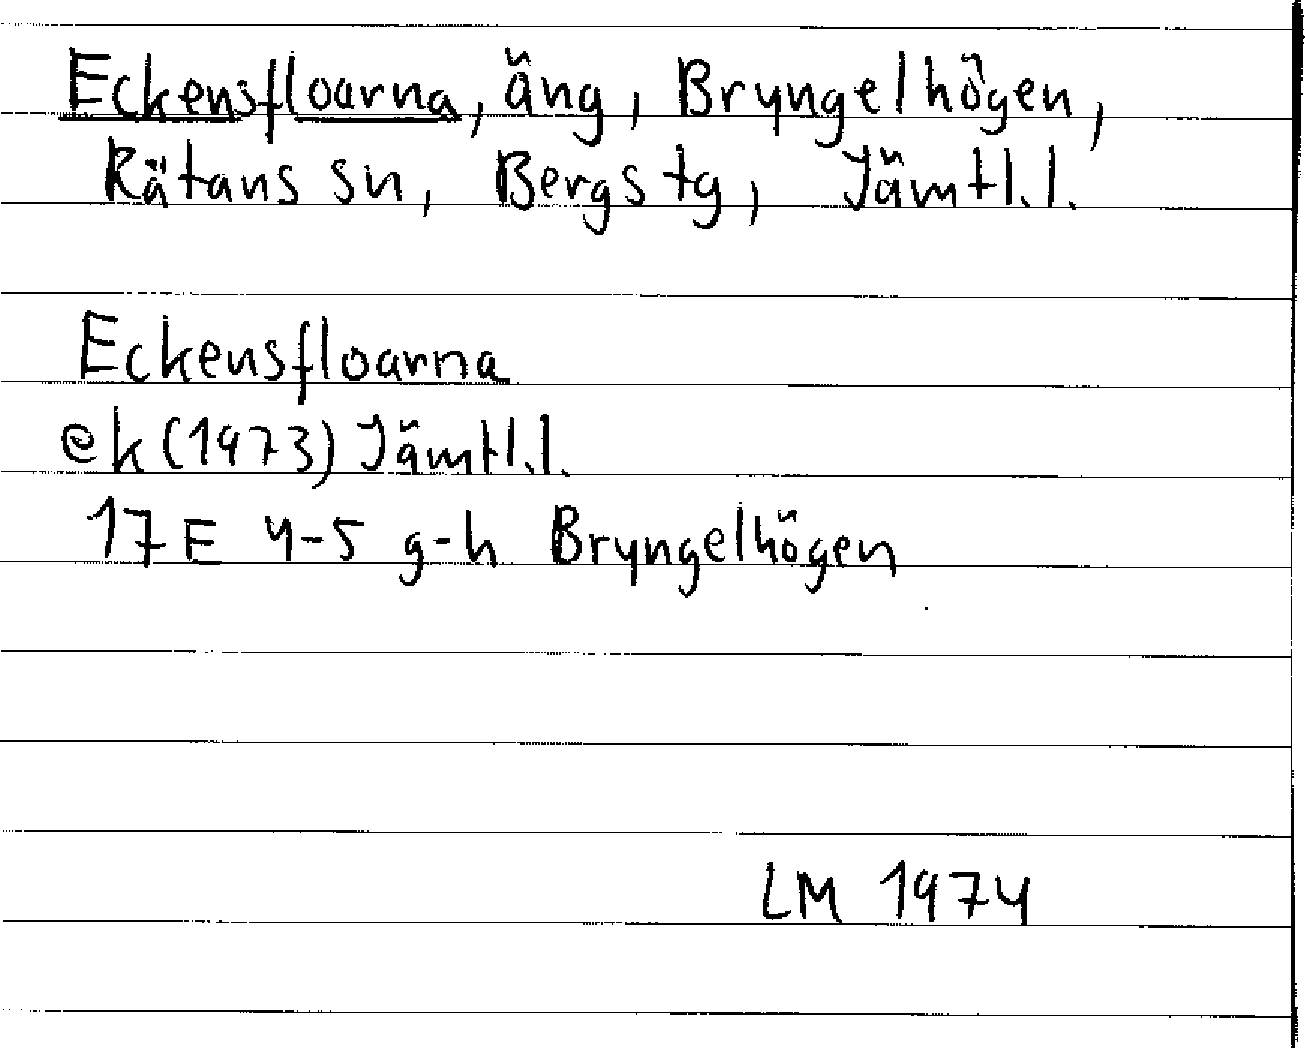 Eckensfloarna, äng, Bryngelhögen,
Rätans sn, Bergs tg, Jämtl.l.
Eckensfloarna
ek (1973) Jämtl.l.
17E 4-5 g-h Bryngelhögen
LM 1974